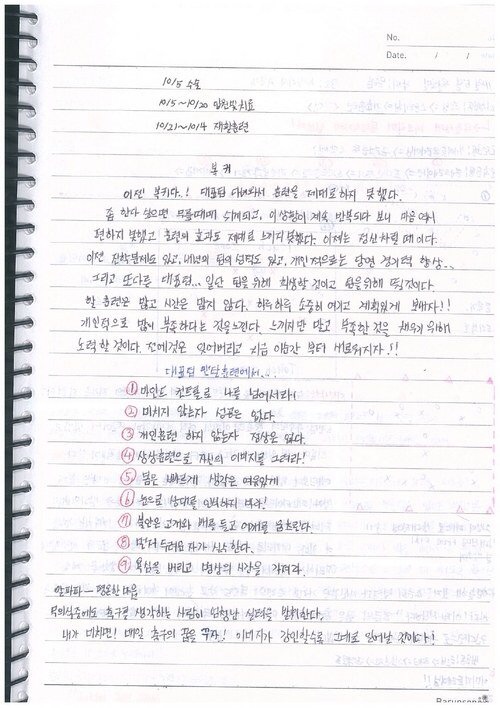 No.
Date. / /
10/5 수술
10/5~10/20 입원및치료
10/21~10/4 재활훈련
복귀
이젠 복귀다.! 대표팀 다녀와서 훈련을 제대로 하지 못했다.
좀 한다 싶으면 무릎때매 쉬게되고, 이 상황이 계속 반복되다 보니 마음 역시
편하지 못했고 훈련의 효과도 제대로 느끼지 못했다. 이제는 정신차릴 때이다.
이젠 진학문제도 있고, 내년의 팀의 성적도 있고, 개인적으로는 당연 경기력 향상..
그리고 또다른 대표팀... 일단 팀을 위해 희생할 것이고 팀을위해 뛸것이다.
할 훈련은 많고 시간은 많지 않다. 하루하루 소중히 여기고 계획있게 보내자!!
개인적으로 많이 부족하다는 것을 느낀다. 느끼지만 말고 부족한 것을 채우기 위해
노력할 것이다. 전에것은 잊어버리고 지금 이순간 부터 새로워지자.!!
대표팀 훈련에서..
① 마인드 컨트롤로 나를 넘어서라!
② 미치지 않는자 성공은 없다.
③ 개인훈련 하지 않는자 정상은 없다.
④ 상상훈련으로 자신의 이미지를 그려라!
⑤ 몸은 빠르게 생각은 여유있게
⑥ 눈으로 상대를 인식하지 마라!
⑦ 불안은 고개와 배를 들고 어깨를 움츠린다.
⑧ 두려운 자가 심하다.
⑨ 욕심을 버리고 명상의 시간을 가져라.
알파파 - 편온한 마음
무의식중에도 축구를 생각하는 사람이 엄청난 실력을 발휘한다.
내가 미치면! 매일 축구의 꿈을 꾸자! 이미지가 강인할수록 그대로 일어날 것이다!